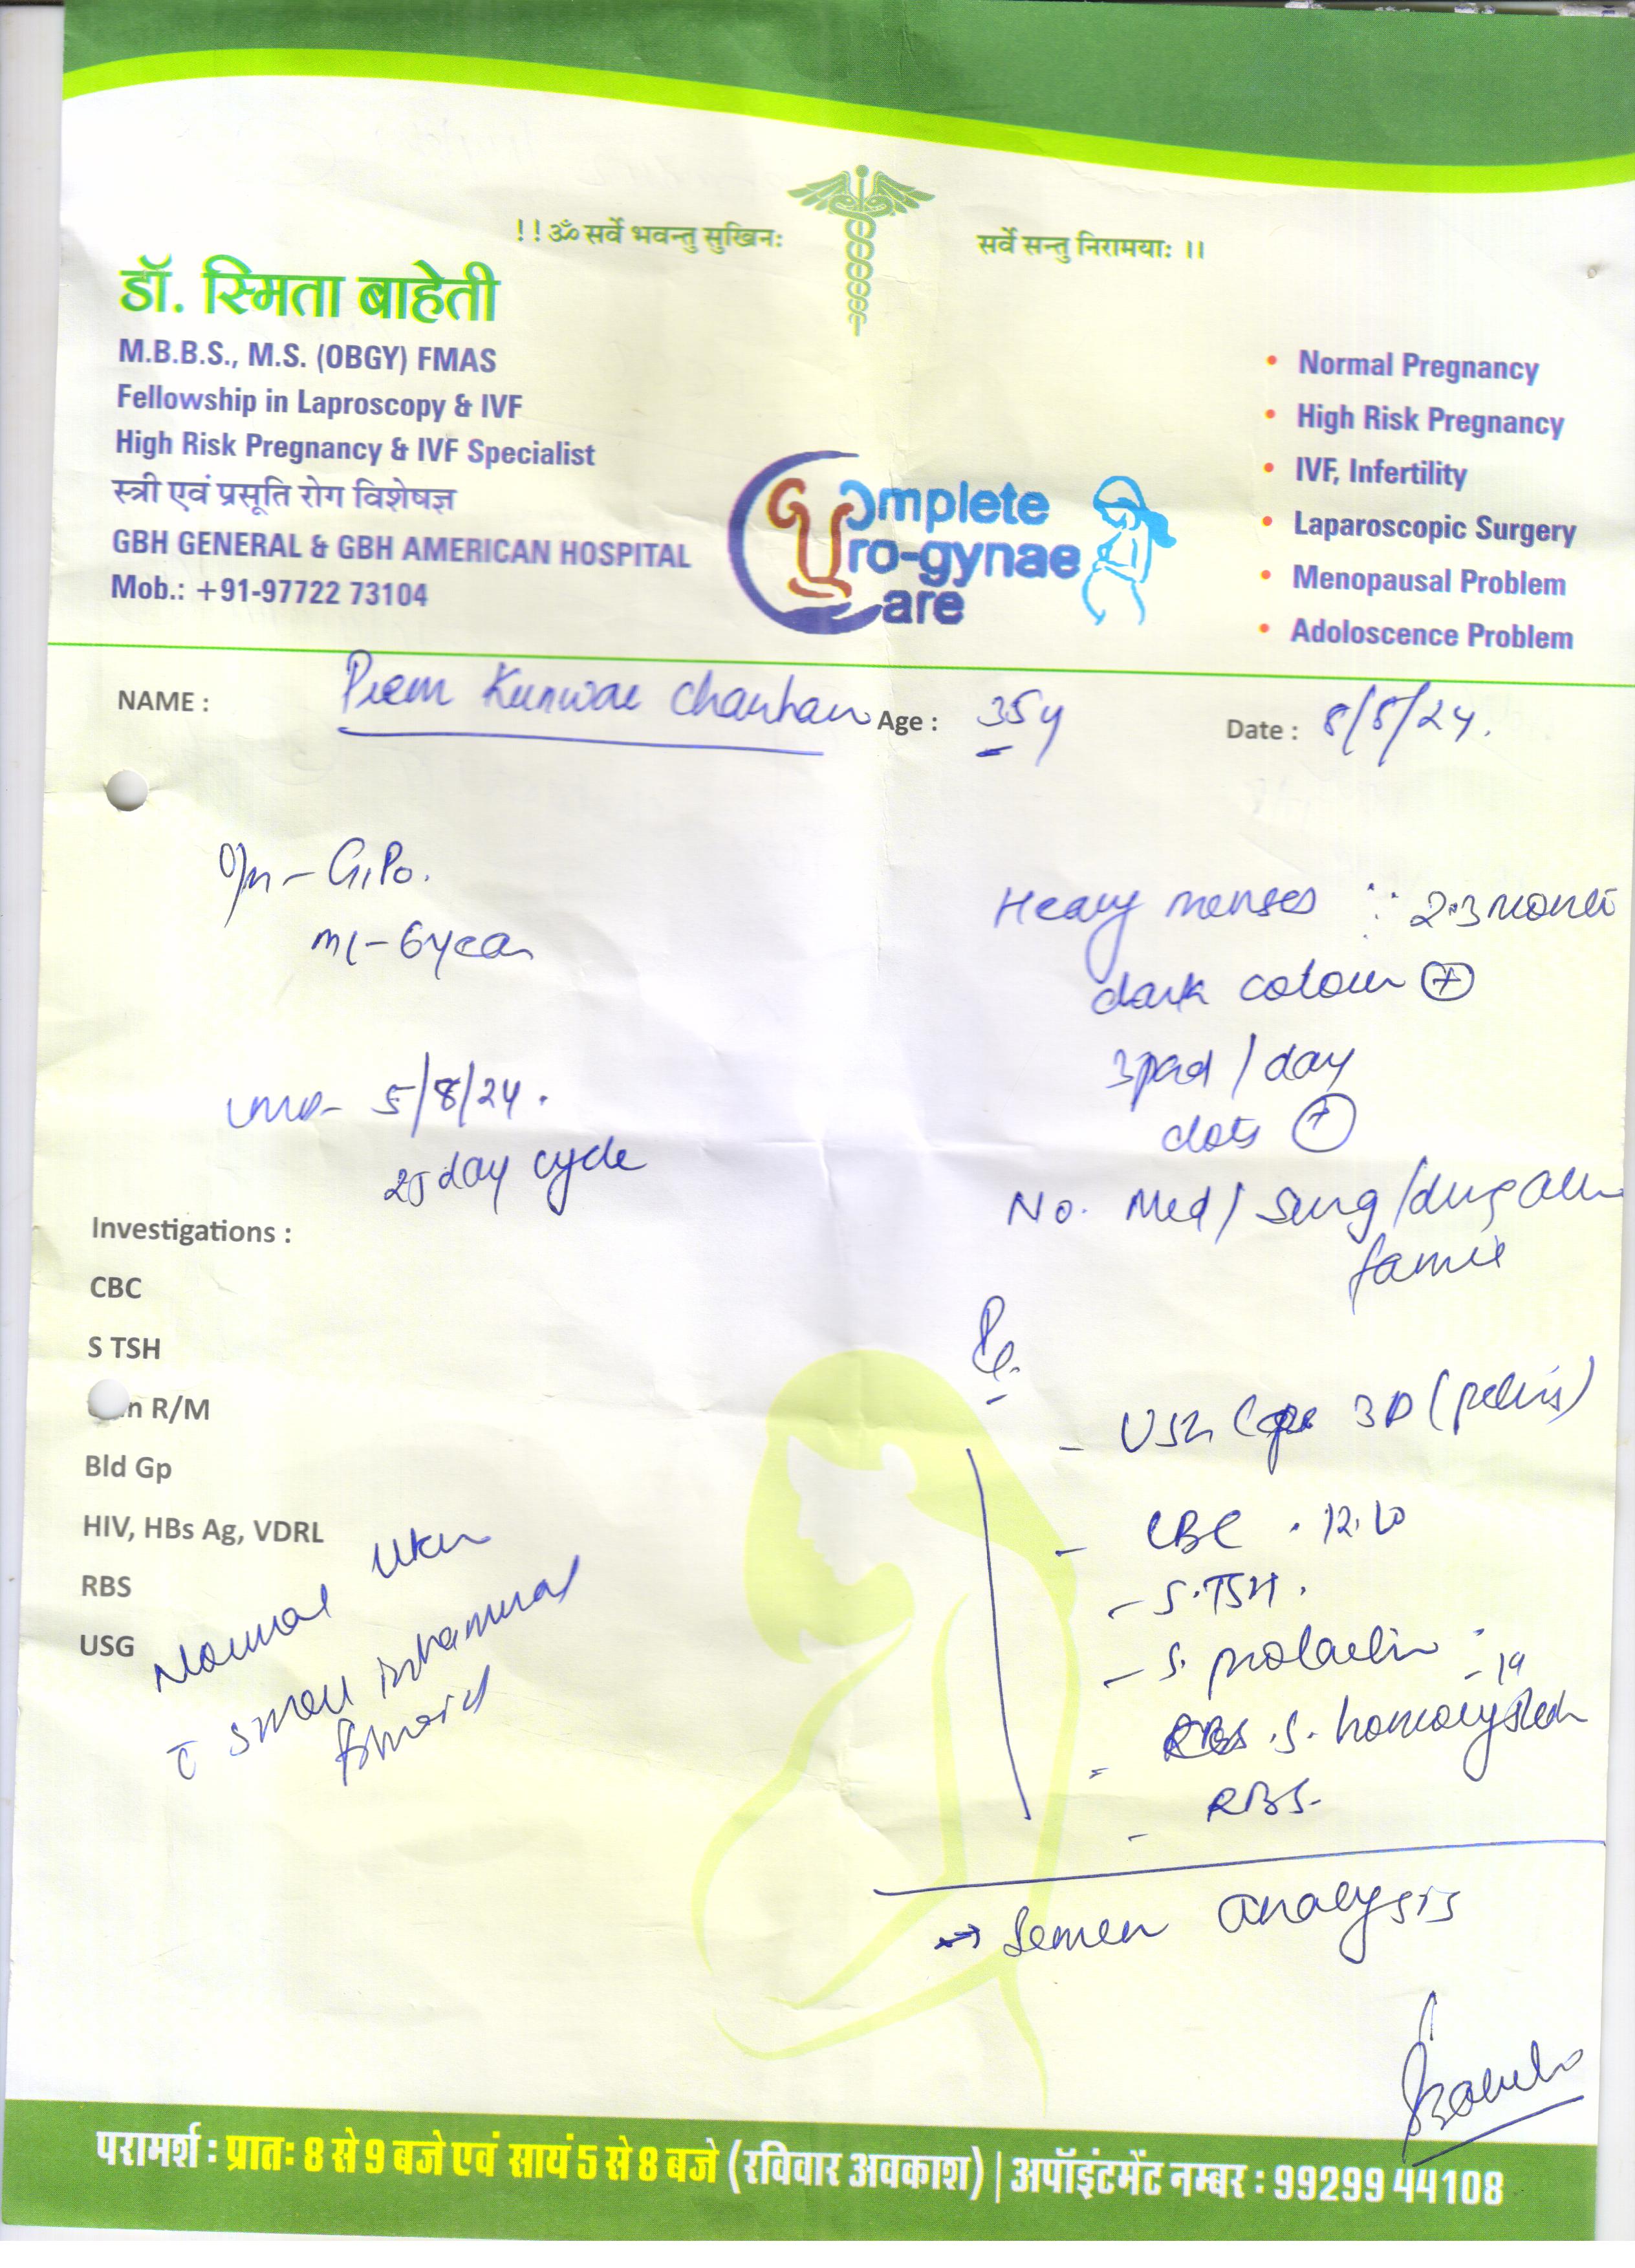 !! ॐ सर्वे भवन्तु सुखिनः सर्वे सन्तु निरामयाः ।।
डॉ. स्मिता बाहेती
M.B.B.S., M.S. (OBGY) FMAS
Fellowship in Laproscopy & IVF
High Risk Pregnancy & IVF Specialist
स्त्री एवं प्रसूति रोग विशेषज्ञ
GBH GENERAL & GBH AMERICAN HOSPITAL
Mob.: +91-97722 73104
Complete
Uro-gynae
Care
• Normal Pregnancy
• High Risk Pregnancy
• IVF, Infertility
• Laparoscopic Surgery
• Menopausal Problem
• Adoloscence Problem
NAME : Prem Kunwar Chauhan Age : 35y Date : 8/8/24.
O/H - G1P0.
ML - 6 year
LMP - 5/8/24.
25 day cycle
Heavy menses ∵ 2-3 month
dark colour (+)
3 pad / day
clots (+)
No. Med / Surg / drug
Investigations :
CBC
S TSH
R/M
Bld Gp
HIV, HBs Ag, VDRL
RBS
USG
Normal
small intramural
fibroid
- USG 3D (pelvis)
- CBC
- S. TSH.
- S. prolactin
- S. homocystein
- RBS.
→ Semen analysis
परामर्श : प्रातः 8 से 9 बजे एवं सायं 5 से 8 बजे (रविवार अवकाश) | अपॉइंटमेंट नम्बर : 99299 44108